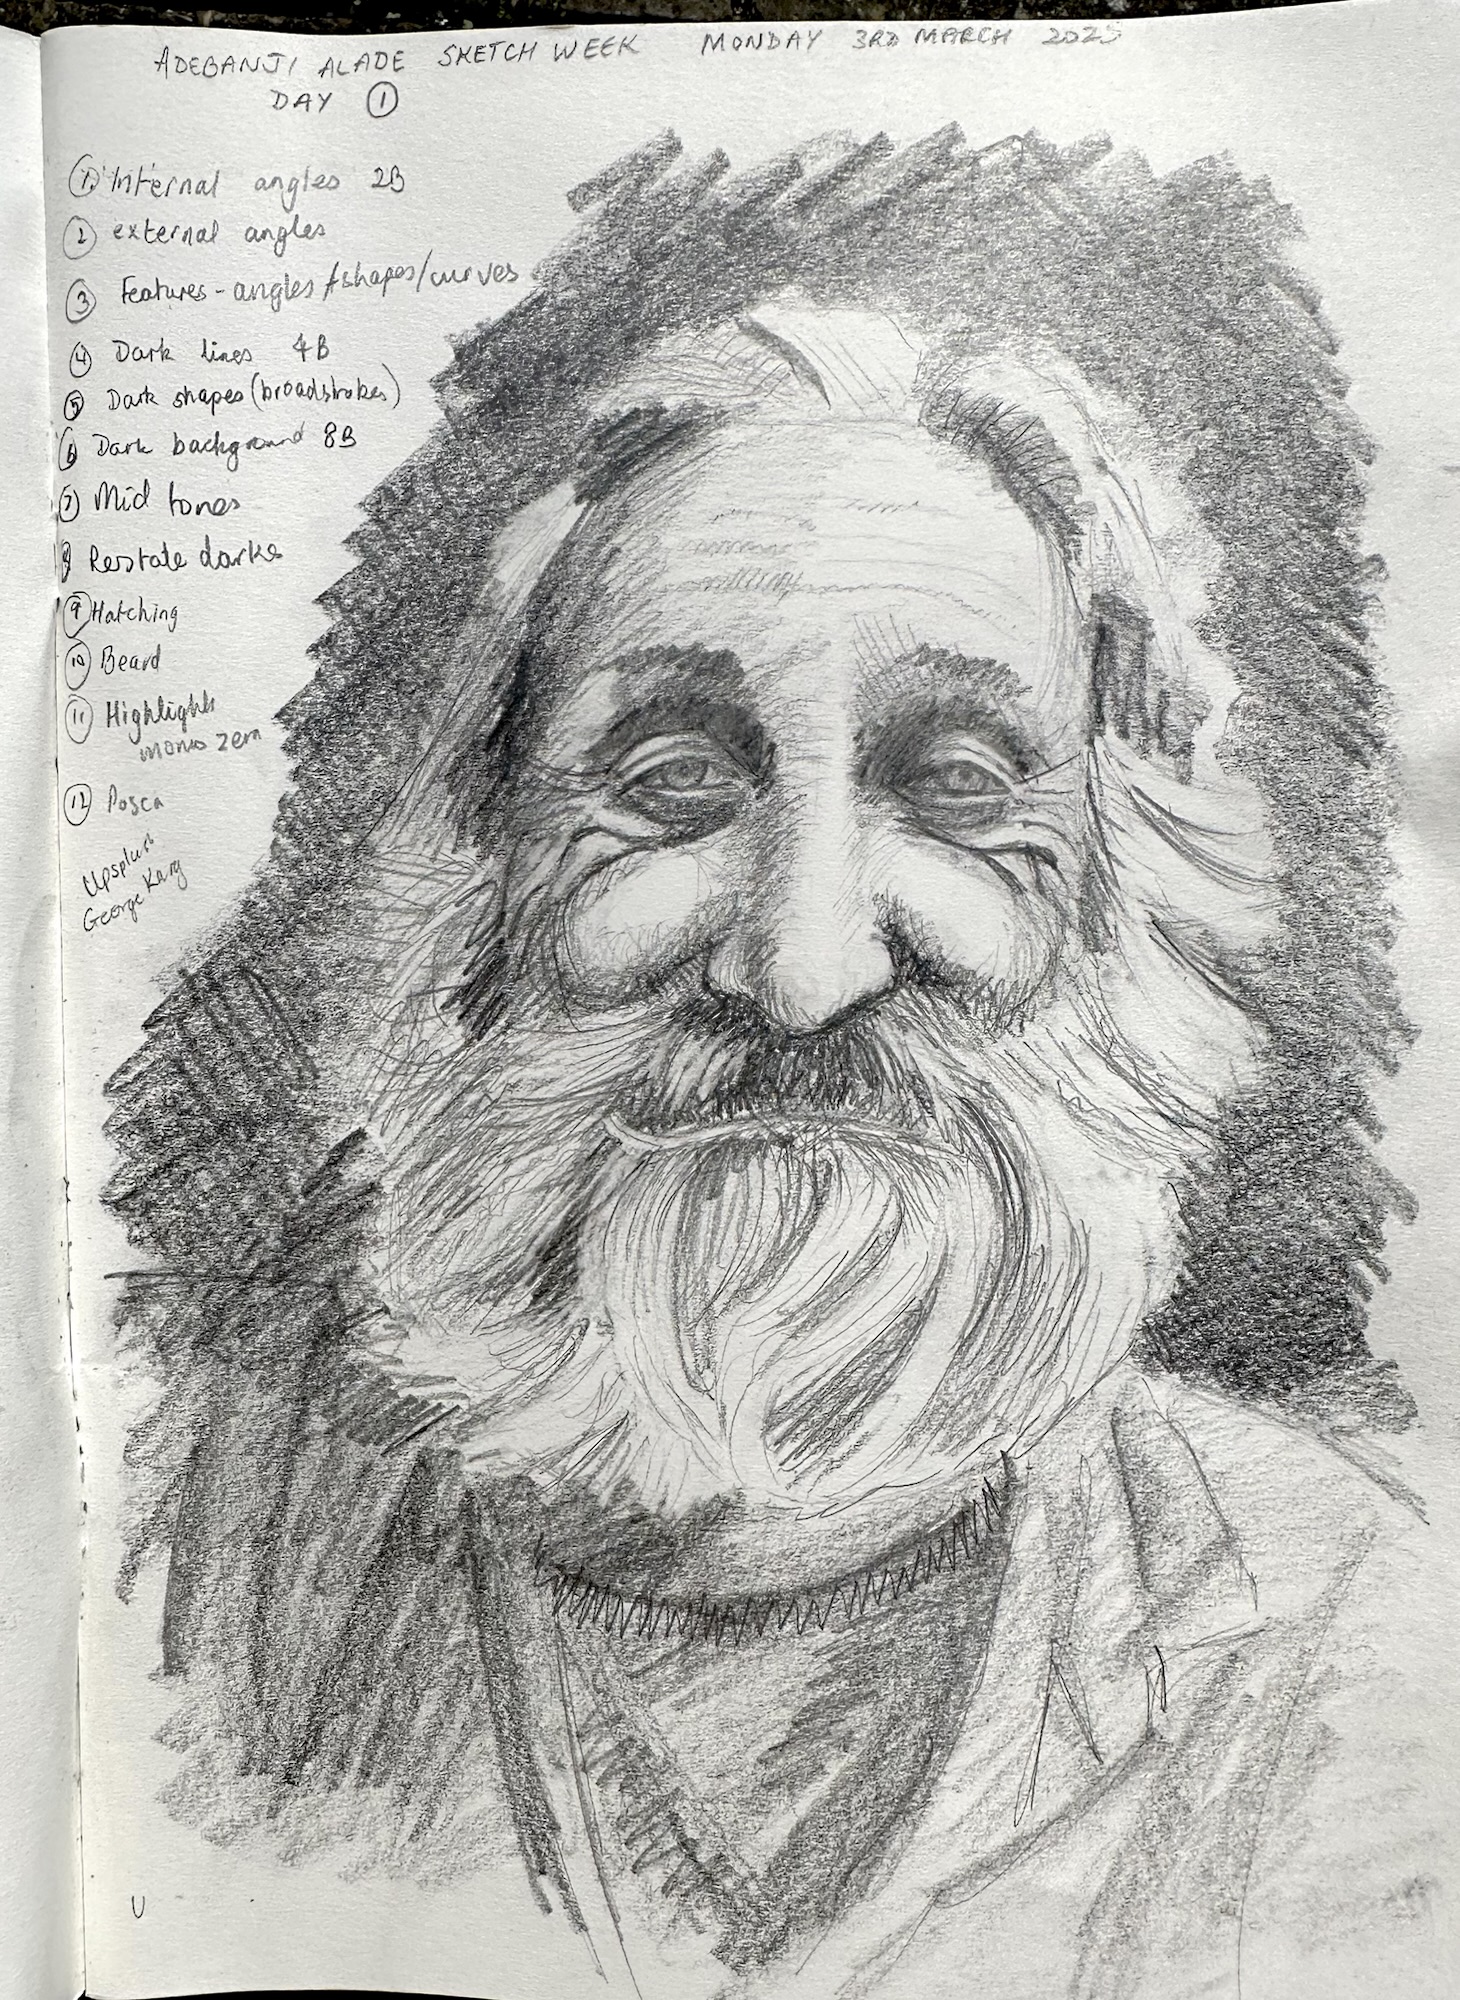 ADEBANJI ALADE SKETCH WEEK MONDAY 3RD MARCH 2025
DAY 1
1. Internal angles 2B
2 external angles
3 Features - angles/shapes/curves
4 Dark lines 4B
5 Dark shapes (broadstrokes)
6 Dark background 8B
7 Mid tones
8 Restate darks
9 Hatching
10 Beard
11 Highlights
mono zero
12 Posca
Upsplash
George Karg
U